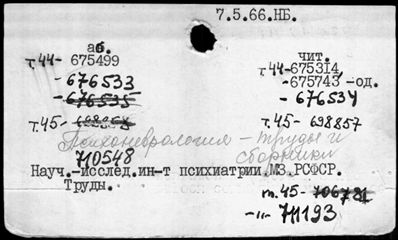 7.5.66.НБ.
аб.
чит.
т.44- 675499
т.44-675314
-676533
-675743 -од.
-676535
- 676534
т.45-
т.45- 698857
Психоневрология - труды и сборники
710548
Науч.-исслед.ин-т психиатрии МЗ.РСФСР.
Труды.
т.45- 706781
-"- 711193